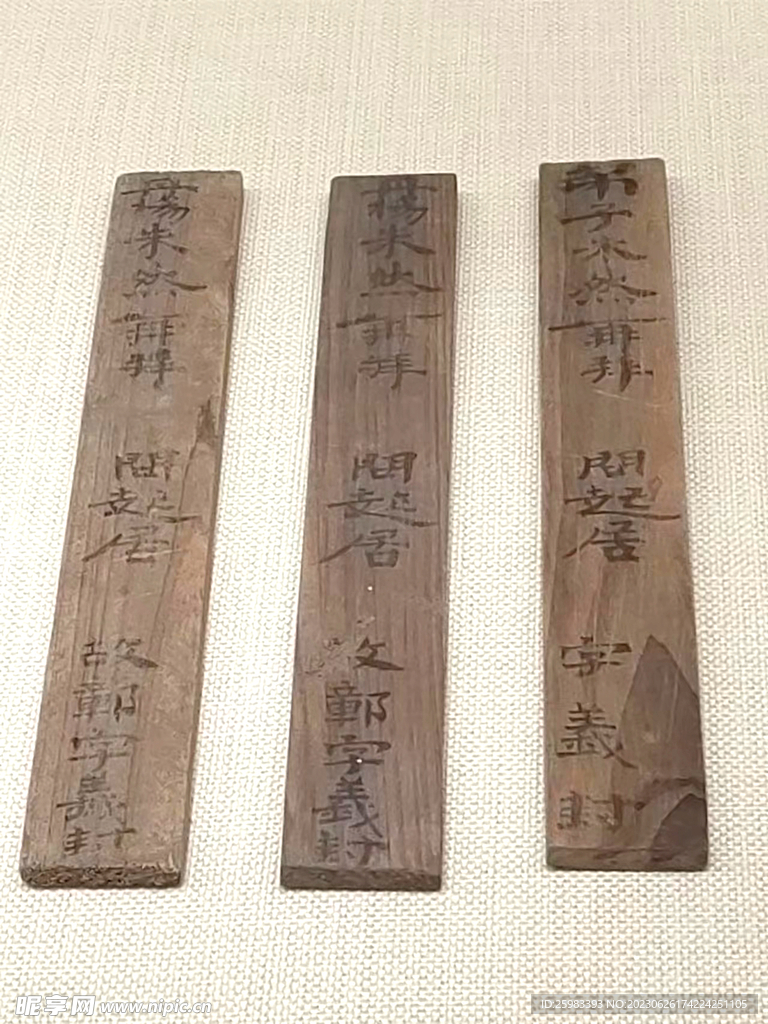 弟子朱然再拜 問起居 字義封
丹楊朱然再拜 問起居 故鄣字義封
丹楊朱然再拜 問起居 故鄣字義封
昵享网 www.nipic.cn
ID:25983393 NO:20230626174224251105